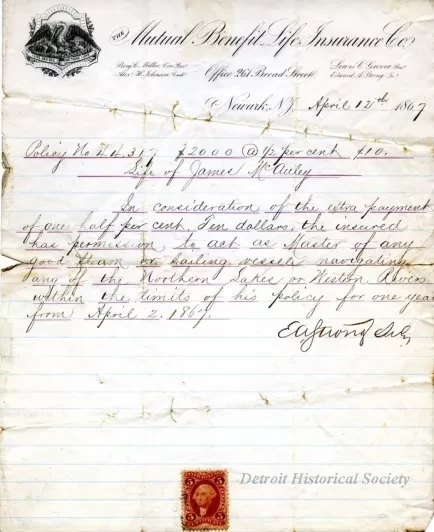 THE Mutual Benefit Life Insurance Co.
Lewis C. Grover Prest.
Edward A. Strong Sec.
Office 261 Broad Street
Newark, N.J. April 12th 1867
Policy No $2000 @ ½ per cent $10.
Life of James McAuley
In consideration of the extra payment
of one half per cent. Ten dollars, the insured
has permission to act as Master of any
good steam or sailing vessel navigating
any of the Northern Lakes or Western Rivers
within the limits of his policy for one year
from April 2. 1867.
EAStrong Sec
5 5
Detroit Historical Society